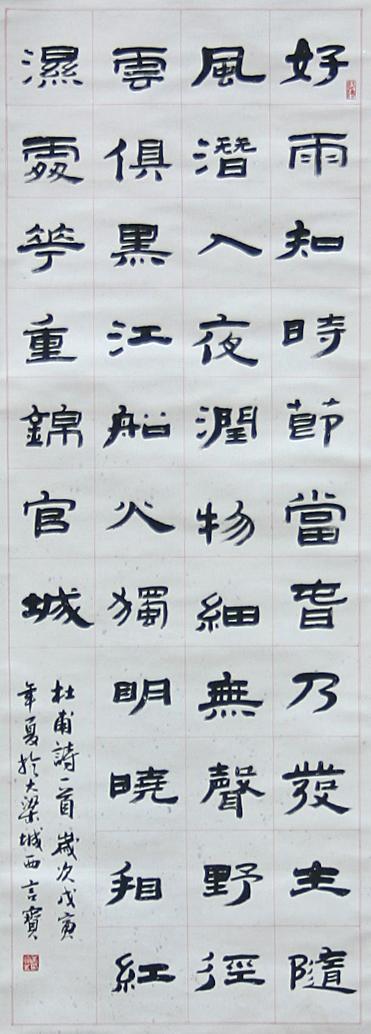 好雨知時節當旾乃發生隨
風潛入夜潤物細無聲野徑
雲俱黑江船火獨明曉相紅
濕處華重錦官城
杜甫詩一首歲次戊寅
年夏於大梁城西言寶